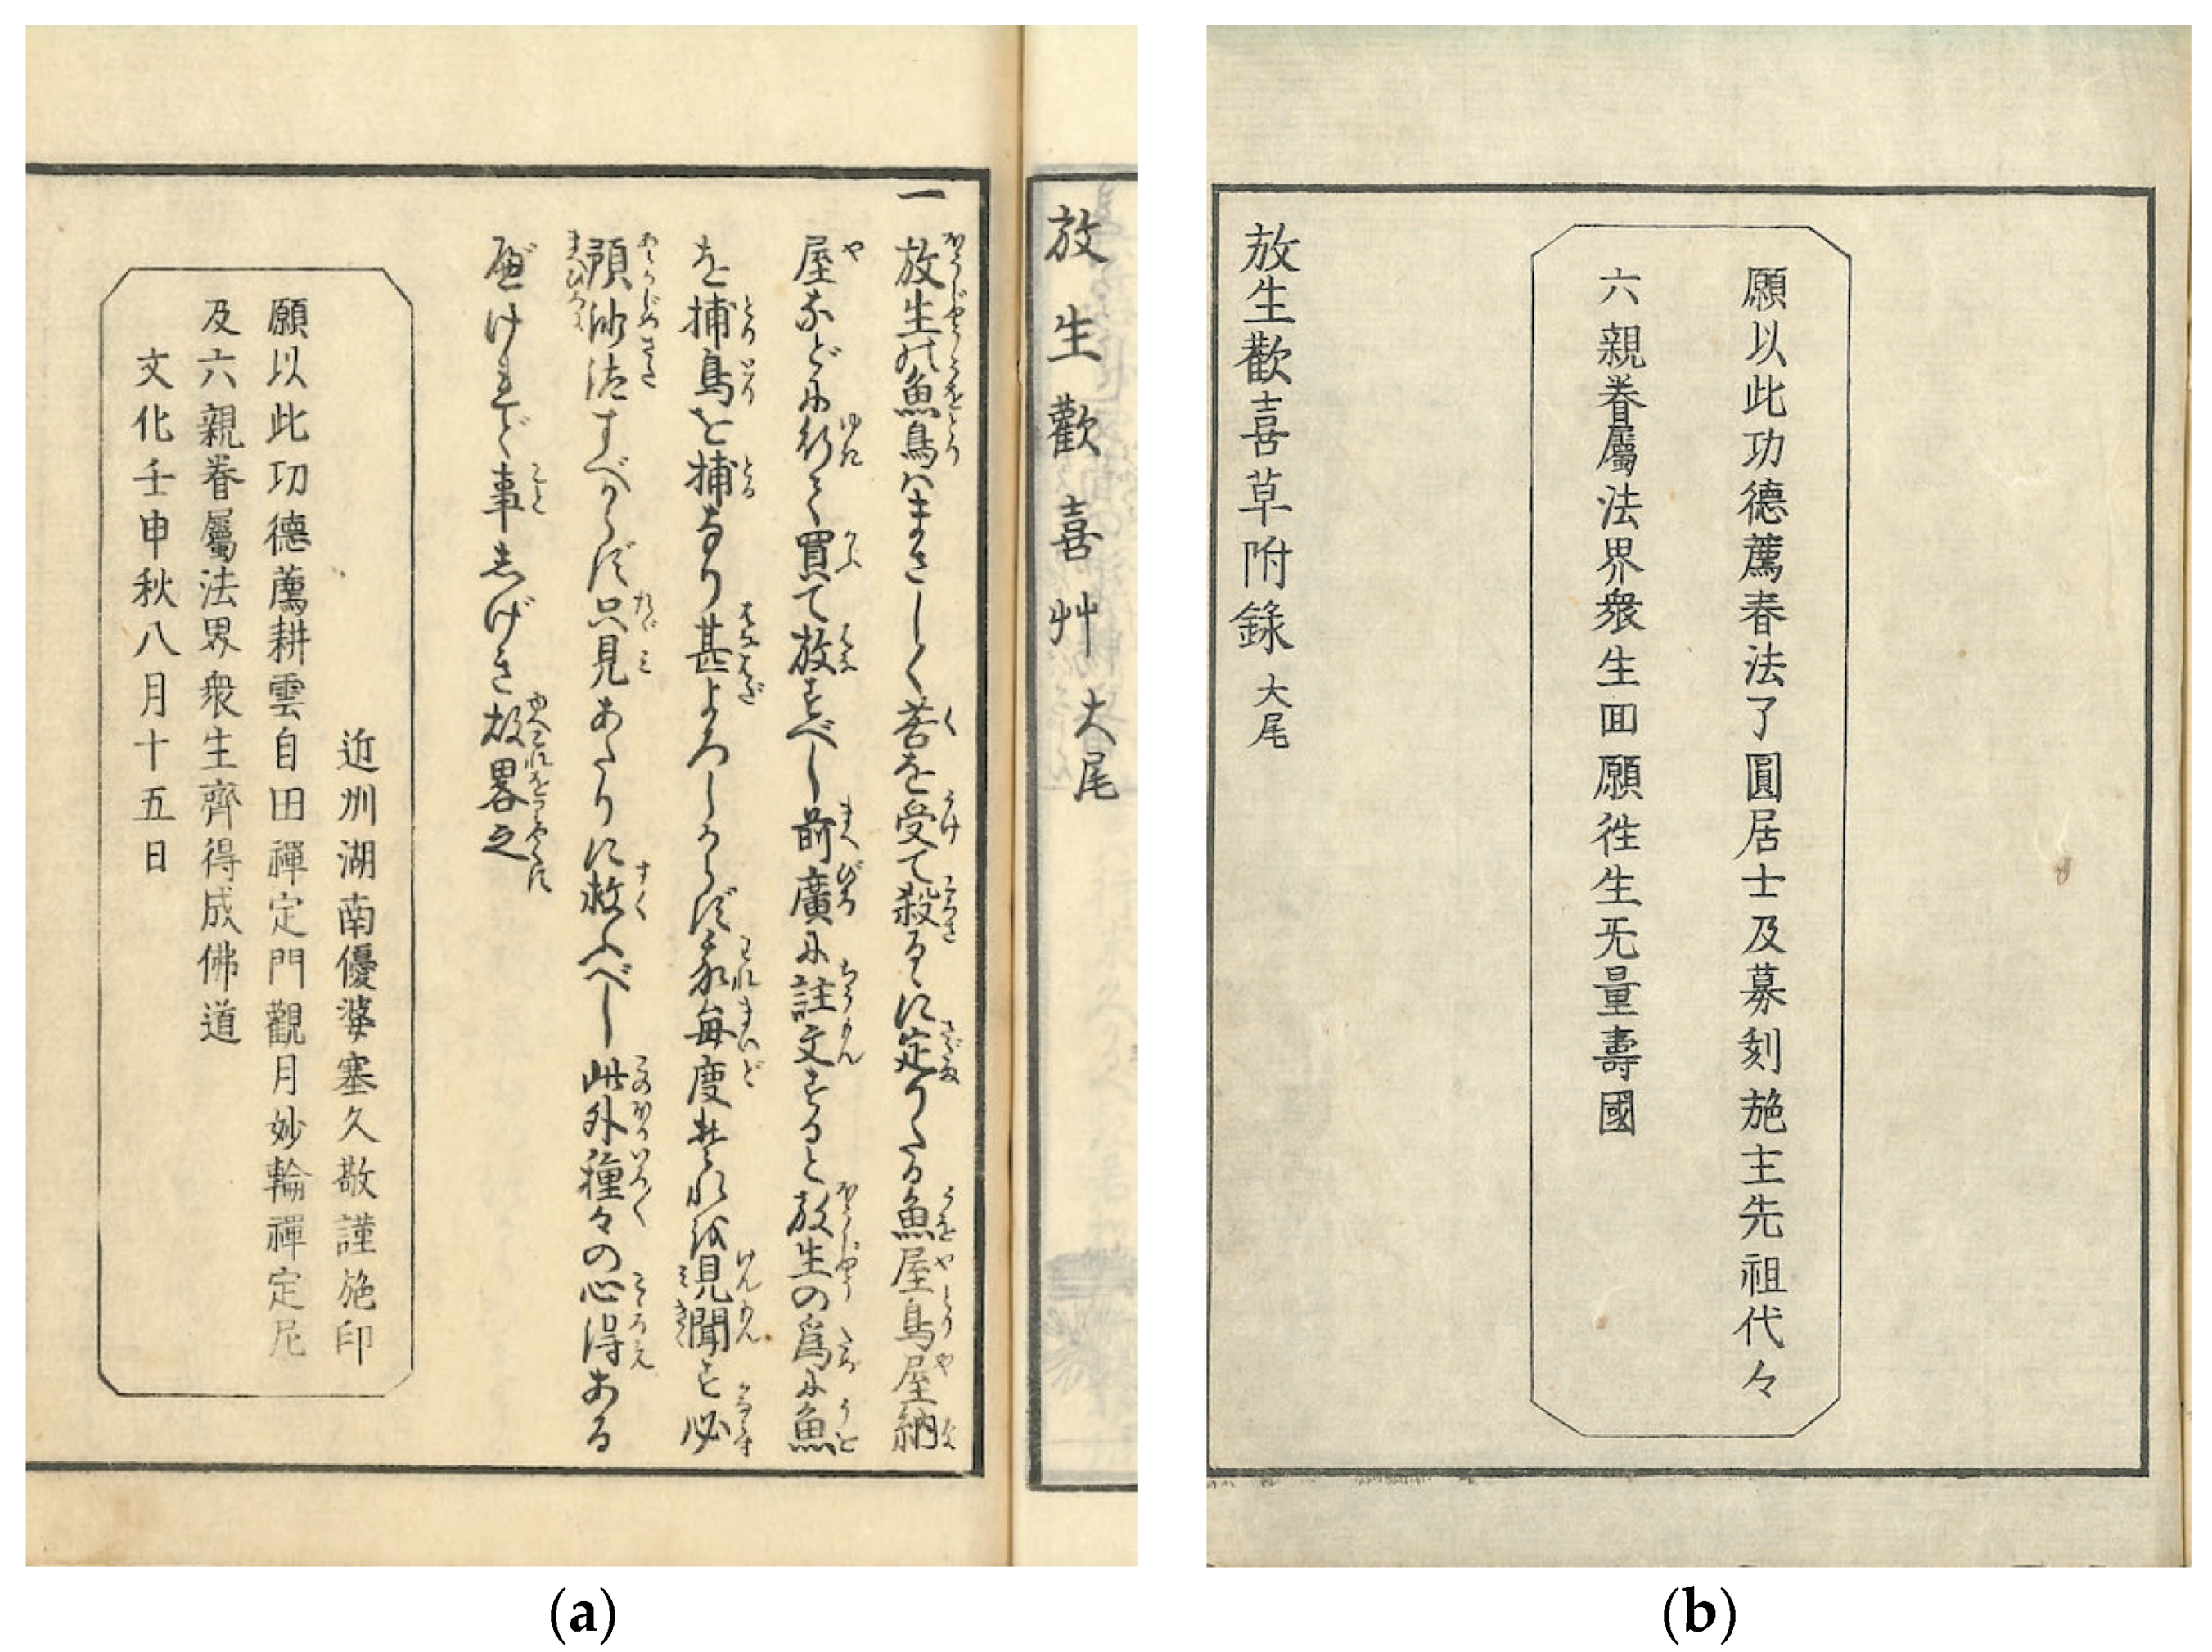 放生歡喜艸 大尾
一 放生の魚鳥ハまさしく苦を受て殺るゝに定りたる魚屋鳥屋納
屋などに行て買て放すべし前廣に註文すると放生の爲に魚
を捕鳥を捕なり甚よろしからず我毎度それを見聞す必
預沙汰すべからず只見あたりに救ふべし此外種々の心得ある
べけれど事しげき故畧之
近州湖南優婆塞久敬謹施印
願以此功德薦耕雲自田禪定門觀月妙輪禪定尼
及六親眷屬法界衆生齊得成佛道
文化壬申秋八月十五日
(a)
願以此功德薦春法了圓居士及募刻施主先祖代々
六親眷屬法界衆生囬願徃生无量壽國
放生歡喜草附錄 大尾
(b)